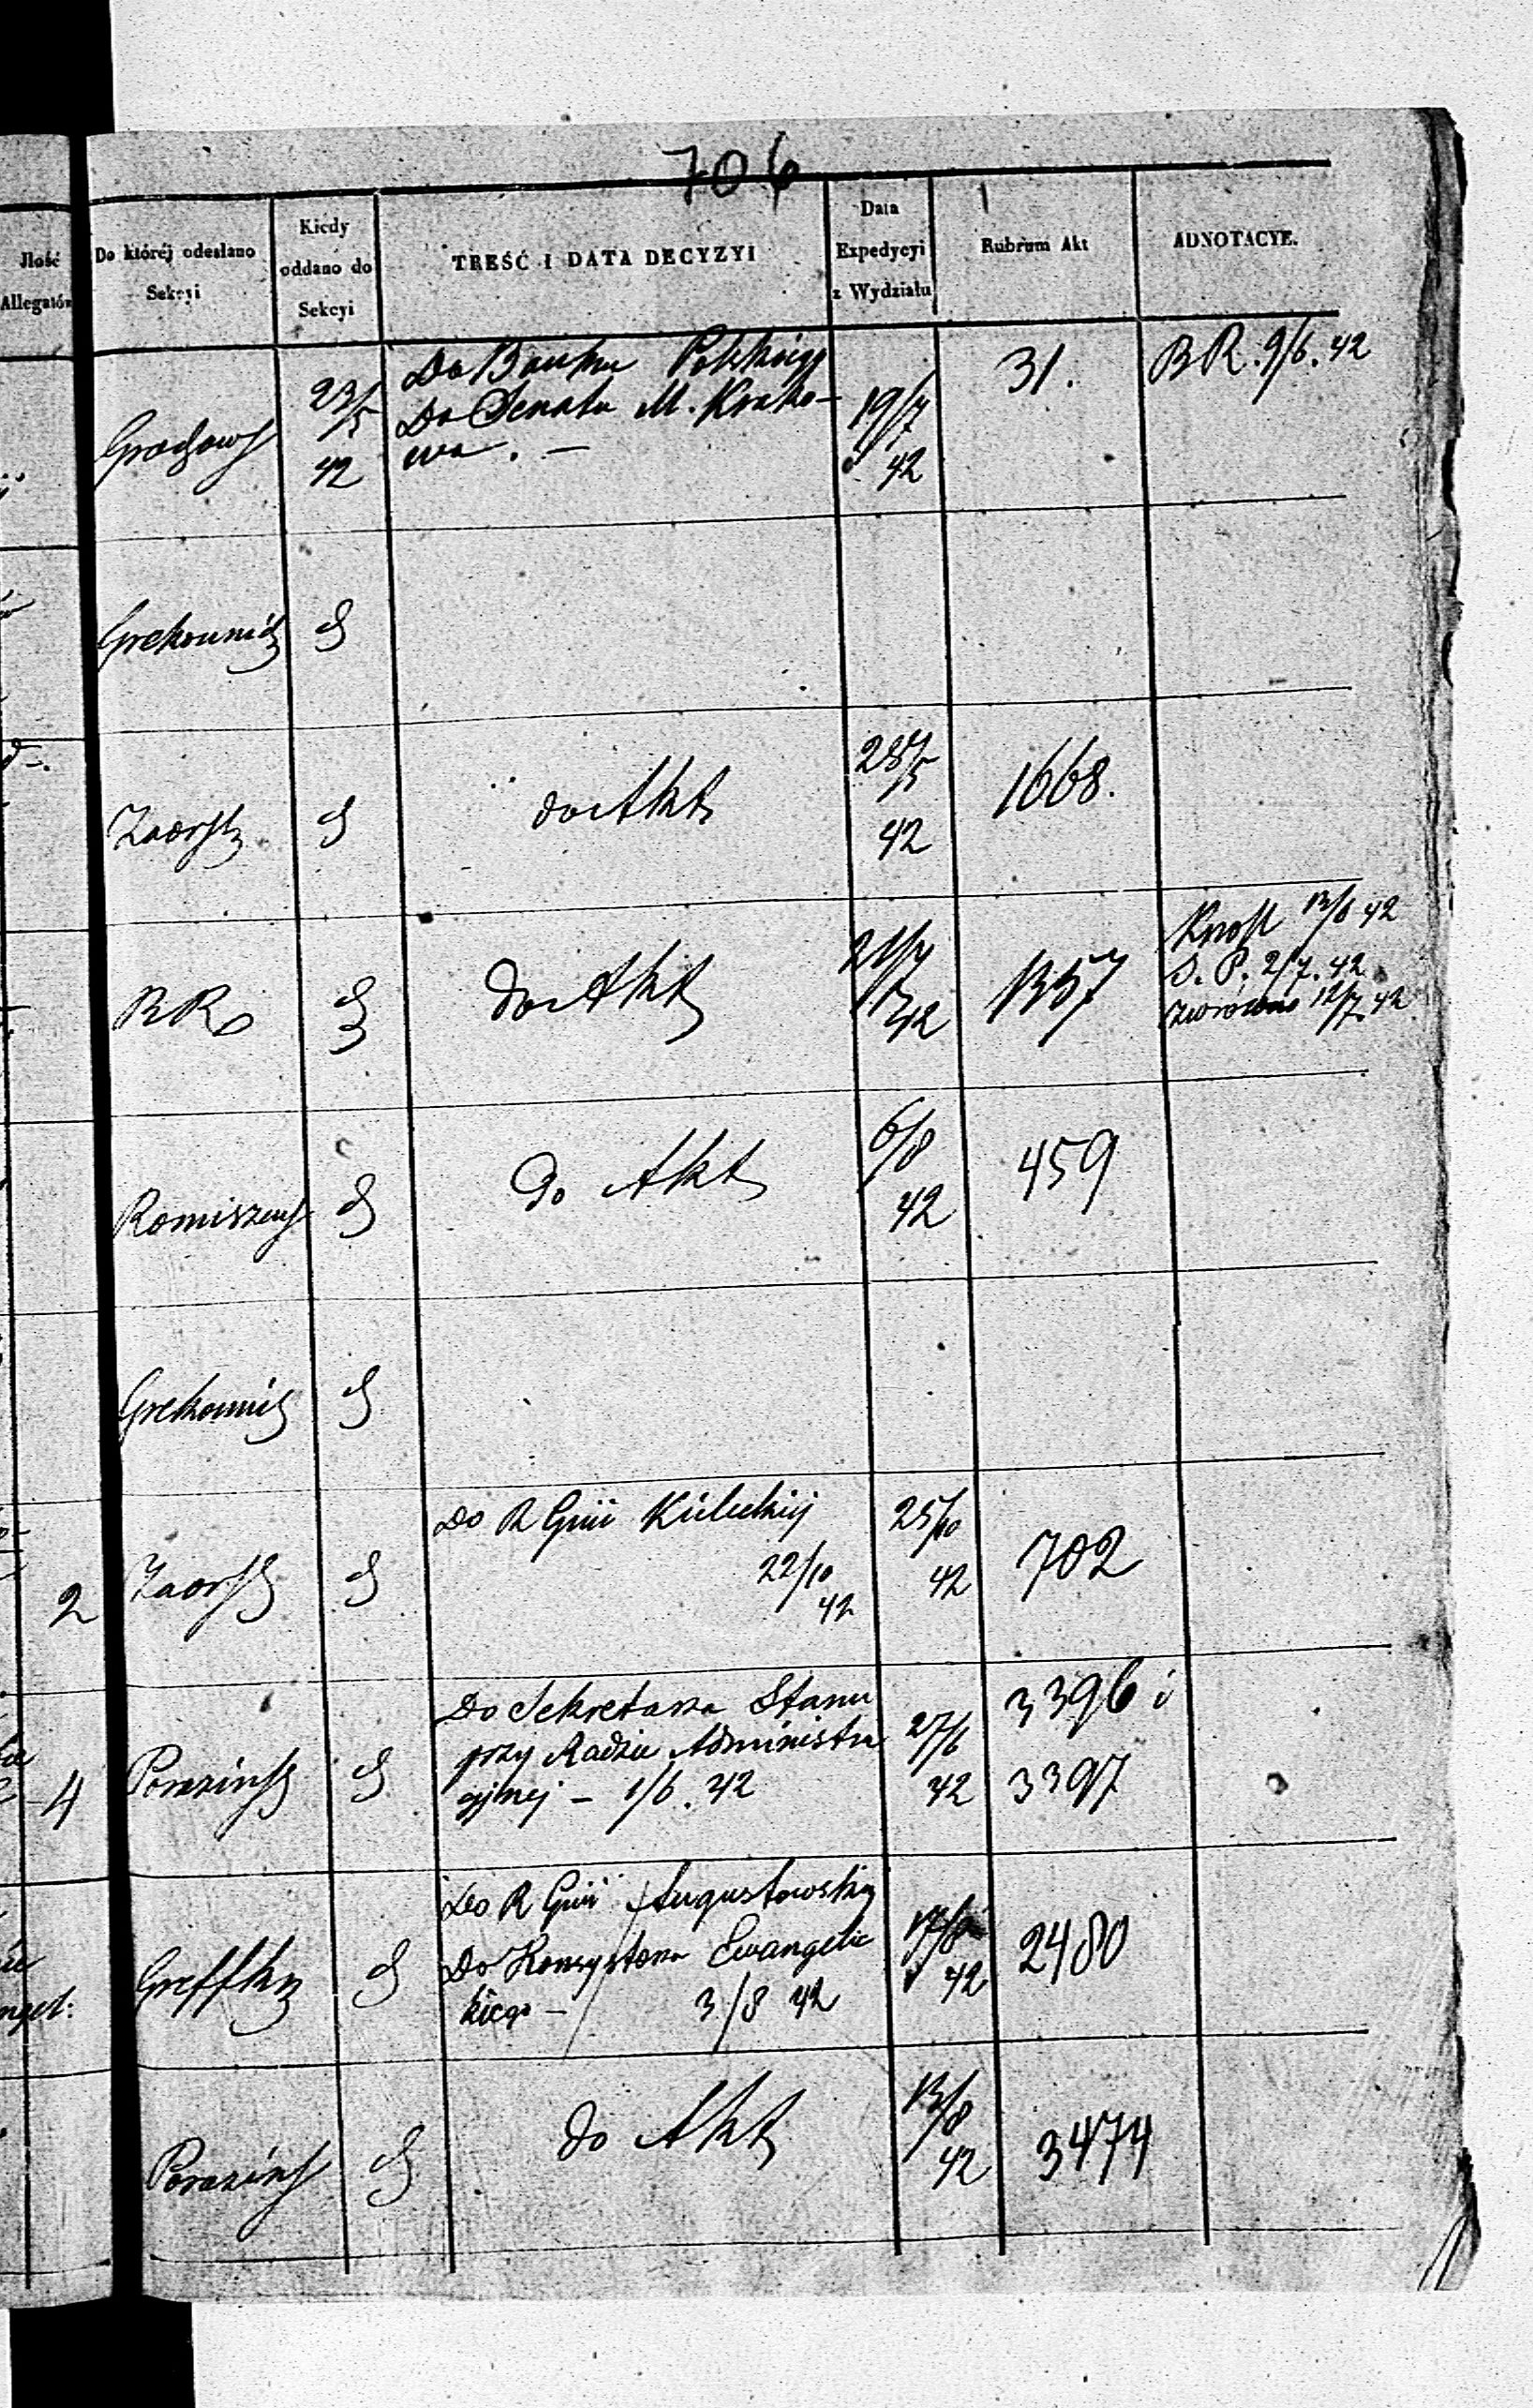 706
Jlość
Allegatów
Do któréj odesłano
Sekcyi
Kiedy
oddano do
Sekcyi
TREŚĆ I DATA DECYZYI
Data
Expedycyi
z Wydziału
Rubrum Akt
ADNOTACYE.
Grochows
23/5
42
Do Banku Polskiego
Do Senatu M. Krako-
wa. —
19/7
42
31.
BR. 9/6. 42
Grekounic
do Akt
28/5
42
1668.
BR
do Akt
21/7
42
1357
13/6 42
S. P. 2/7. 42
zwrócono 12/7 42
Romiszews
do Akt
6/8
42
459
2
Do R Gnii Kieleckiej
22/10
42
25/10
42
702
4
Porazińs
Do Sekretarza Stanu
przy Radzie Administra
cyjnej — 1/6. 42
27/6
42
3396 i
3397
Do R Gnii Augustowskiej
Do Konsystorza Ewangelic
kiego — 3/8 42
17/8
42
2480
Porazińs
do Akt
13/8
42
3474